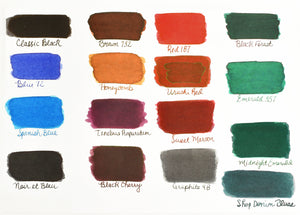 Classic Black
Brown 732
Red 187
Black Forest
Blue 72
Honeycomb
Urushi Red
Emerald 357
Spanish Blue
Tenebris Purpuratum
Sweet Maroon
Midnight Emerald
Noir et Bleu
Black Cherry
Graphite 48
Shop Denim Blues